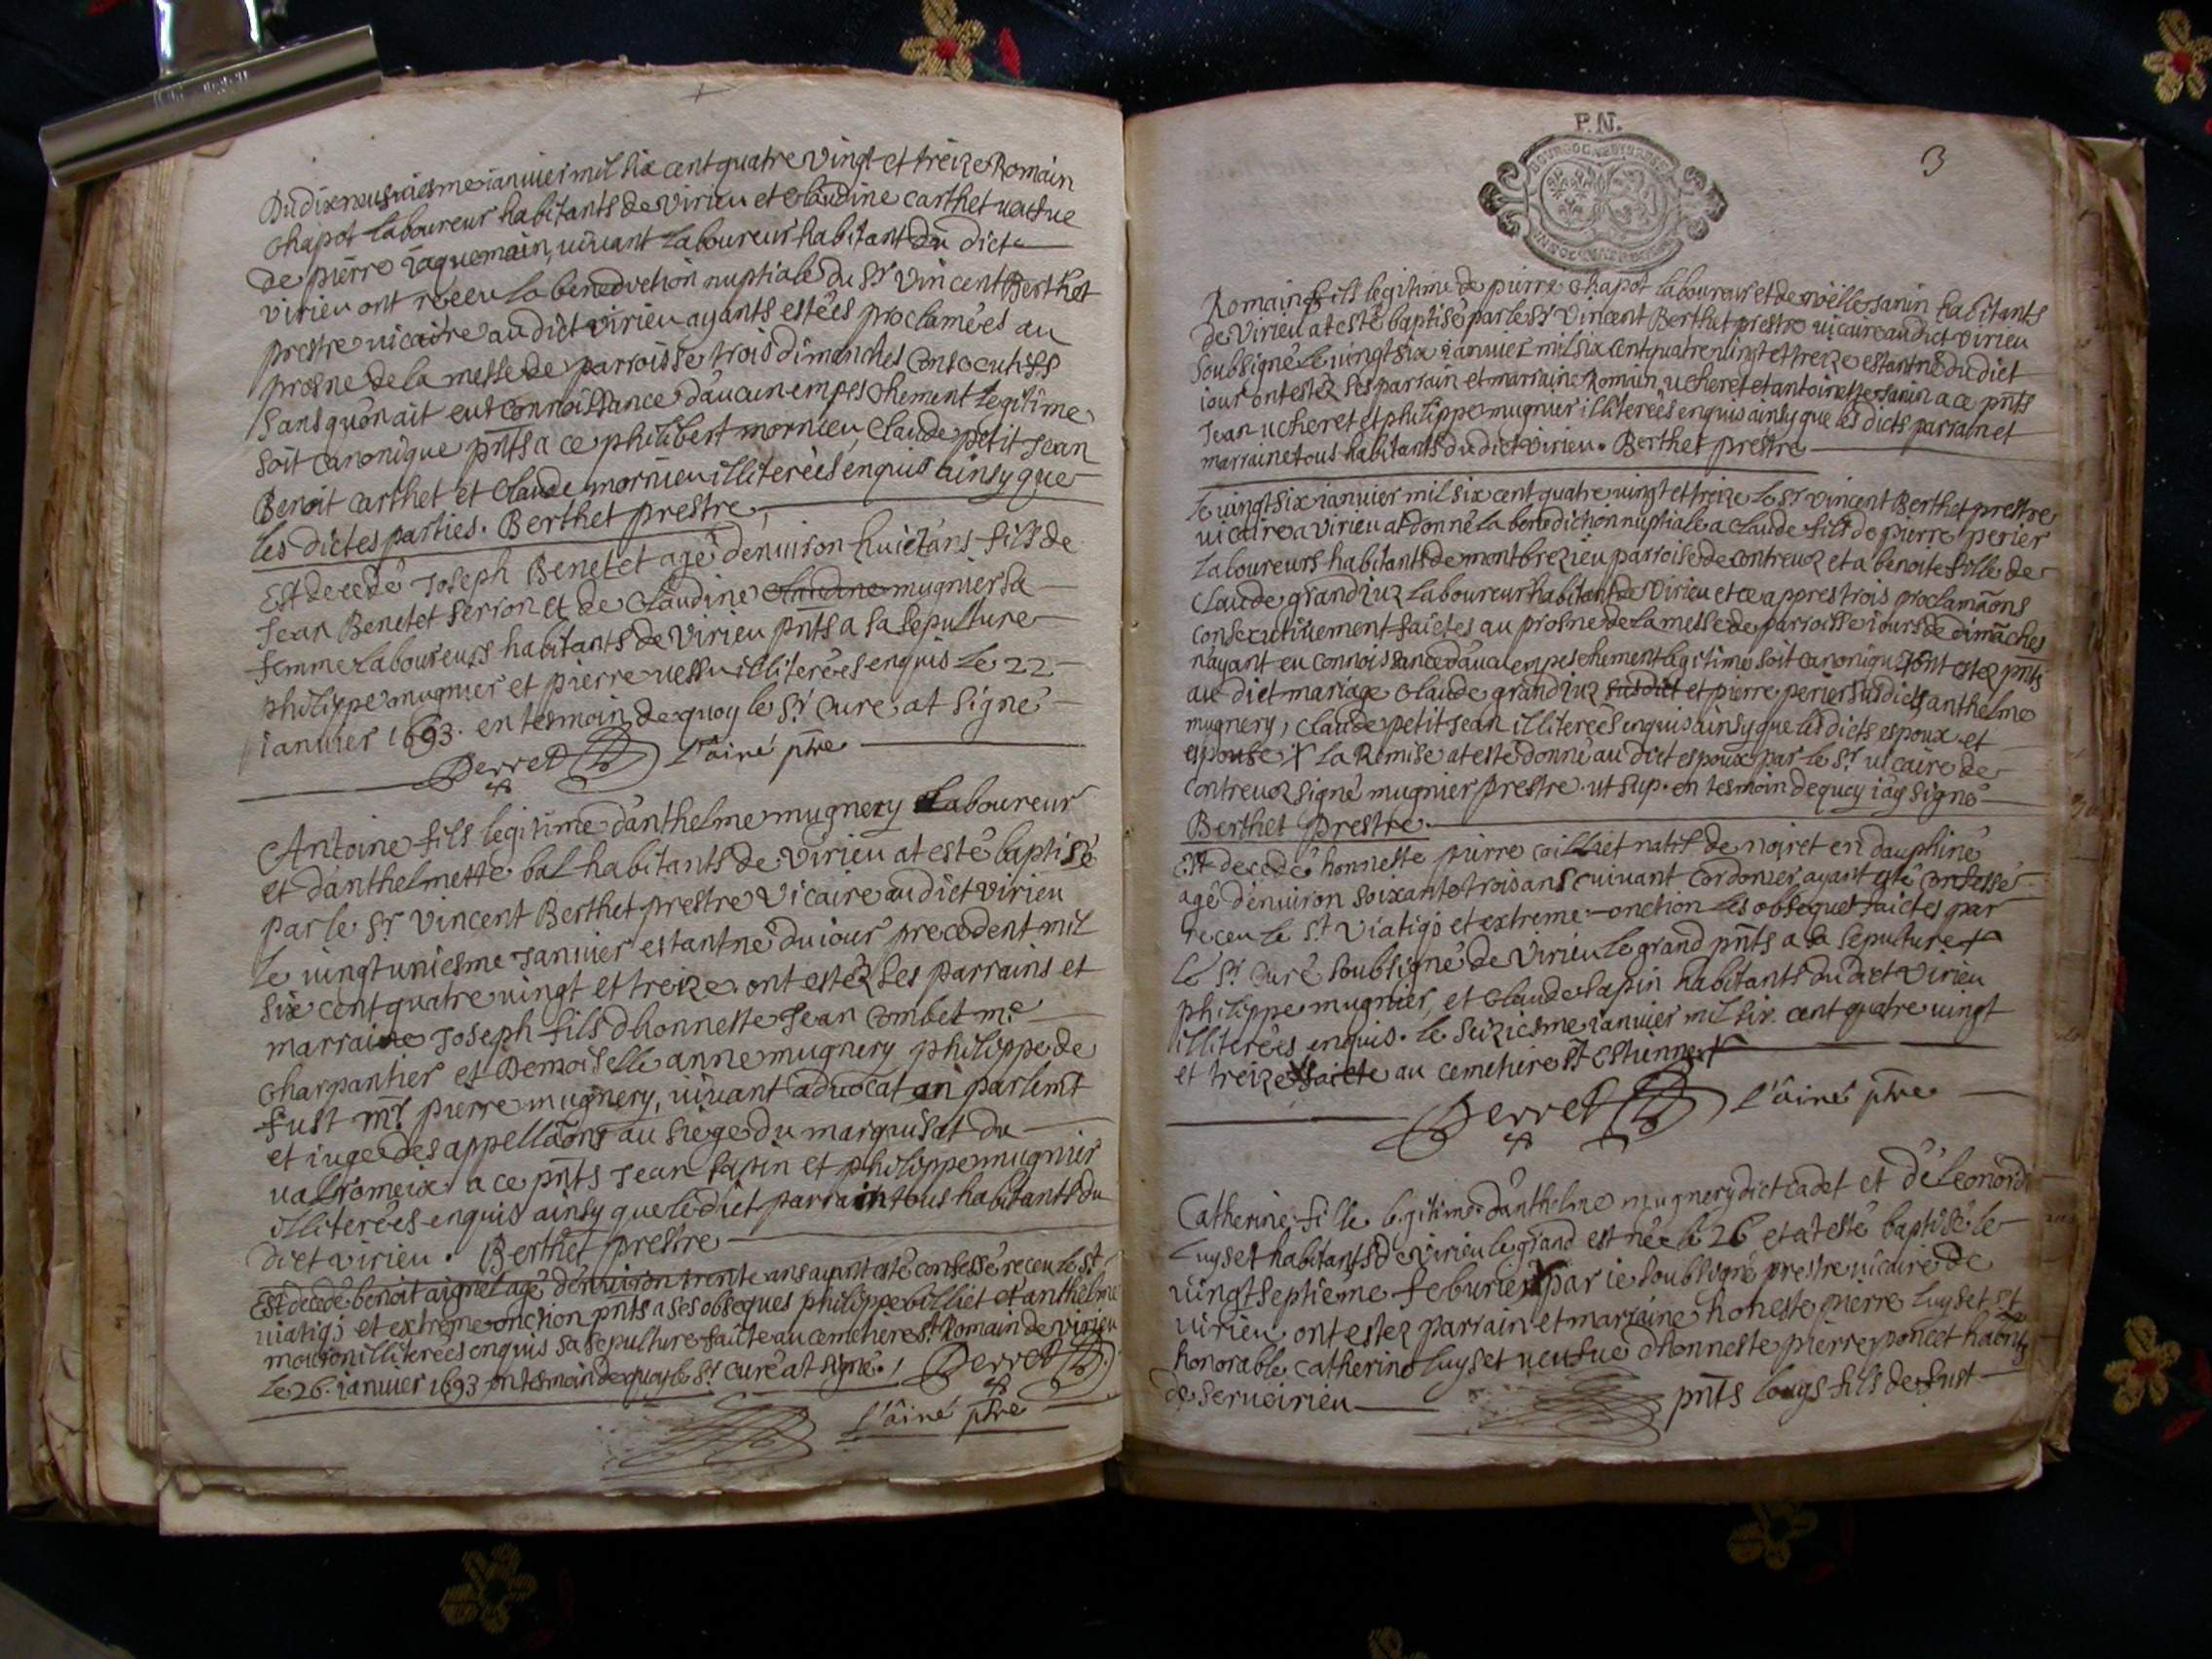 Du dixneufviesme ianvier mil six cent quatre vingt et treize Romain
chapot laboureur habitants de virieu et Claudine carthet veufue
de pierre iaquemain, vivant laboureur habitant du dict
virieu ont receu la benediction nuptiale du Sr Vincent Berthet
prestre vicaire au dict virieu ayants estées proclamées au
prosne de la messe de parroisse trois dimanches consecutifs
sans qu'on ait eut connoissance d'aucun empeschement legitime
soit canonique pnts a ce philibert mornieu, Claude petit Jean
Benoit Carthet et Claude mornieu illiterées enquis ainsy que
les dictes parties. Berthet prestre
Est decedé Joseph Benetet agé d'enuiron huict ans fils de
Jean Benetet serron et de Claudine mugnier sa
femme laboureurs habitants de virieu pnts a sa sepulture
philippe mugnier et pierre uessu illiterées enquis le 22
ianuier 1693. en tesmoin de quoy le Sr curé at signé
Perret l'ainé ptre
Antoine fils legitime d'anthelme mugnery laboureur
et d'anthelmette bal habitants de virieu at esté baptisé
par le Sr Vincent Berthet prestre vicaire au dict virieu
le vingt uniesme Janvier estant né du iour precedent mil
six cent quatre vingt et treize. ont estez ses parrains et
marraine Joseph fils d'honneste Jean Combet me
charpantier et Demoiselle anne mugnery philippe de
fust mr pierre mugnery, vivant aduocat en parlemt
et iuge des appellaons au siege du marquisat du
ualromeix a ce pnts Jean sapin et philippe mugnier
illiterées enquis ainsy que le dict parrain tous habitants du
dict virieu. Berthet prestre
Est decedé benoit aignel agé d'enuiron trente ans ayant esté confessé receu le st
uiatiq; et extreme onction pnts a ses obseques philippe billiet et anthelme
mouron illiterées enquis sa sepulture faicte au cemetiere St Romain de virieu
le 26. ianuier 1693 en tesmoin de quoy le Sr curé at signé. Perret
l'ainé ptre
P.N.
3
Romain fils legitime de pierre chapot laboureur et de noëlle sanin habitants
de Virieu at esté baptisé par le Sr Vincent Berthet prestre vicaire au dict virieu
soubsigné le vingt six ianuier mil six cent quatre vingt et treize estant né du dict
iour ont estez ses parrain et marraine Romain ucheret et antoinette sanin a ce pnts
Jean ucheret et philippe mugnier illiterées enquis ainsy que les dicts parrain et
marraine tous habitants du dict virieu. Berthet prestre
Le vingt six ianvier mil six cent quatre vingt et treize le Sr vincent Berthet prestre
vicaire a virieu at donné la benediction nuptiale a claude fils de pierre perier
laboureurs habitants de montbrezieu parroise de contreuoz et a benoite fille de
Claude grandiuz laboureur habitant de Virieu et ce appres trois proclamaons
consecutiuement faictes au prosne de la messe de parroisse iours de dimâches
n'ayant eu connoissance d'aucun empeschement legitime soit canonique, ont estez pnts
au dict mariage claude grandiuz susdict et pierre perier susdicts anthelme
mugnery, Claude petit Jean illiterées enquis ainsy que les dicts espoux et
espouse X la Remise at esté donné au dict espoux par le Sr vicaire de
contreuoz signé mugnier prestre. ut sup. en tesmoin de quoy i'ay signé
Berthet prestre.
Est decedé honneste pierre cailliet natif de noiret en dauphiné
agé d'enuiron soixante trois ans vivant cordonier ayant esté confessé
receu le St Viatiq; et extreme onction les obseques faictes par
le Sr Curé soubsigné de Virieu le grand pnts a sa sepulture
philippe mugnier, et Claude sapin habitants du dict virieu
illiterées enquis. le seiziesme ianvier mil six cent quatre vingt
et treize faicte au cemetiere St Estienne
Perret l'ainé ptre
Catherine fille legitime d'anthelme mugnery dict cadet et de Leonord
Luyset habitants de virieu le grand est née le 26 et at esté baptisé le
vingt septieme feburier par ie soubsigné prestre vicaire de
virieu ont estez parrain et marraine honeste pierre luyset et
honorable catherine luyset veufue d'honneste pierre poncet habnts
de serueirieu pnts Louys fils de fust